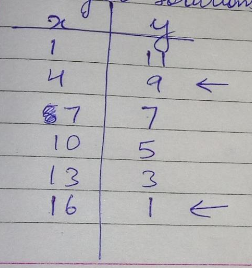 solution
x y
1 11
4 9 ←
7 7
10 5
13 3
16 1 ←